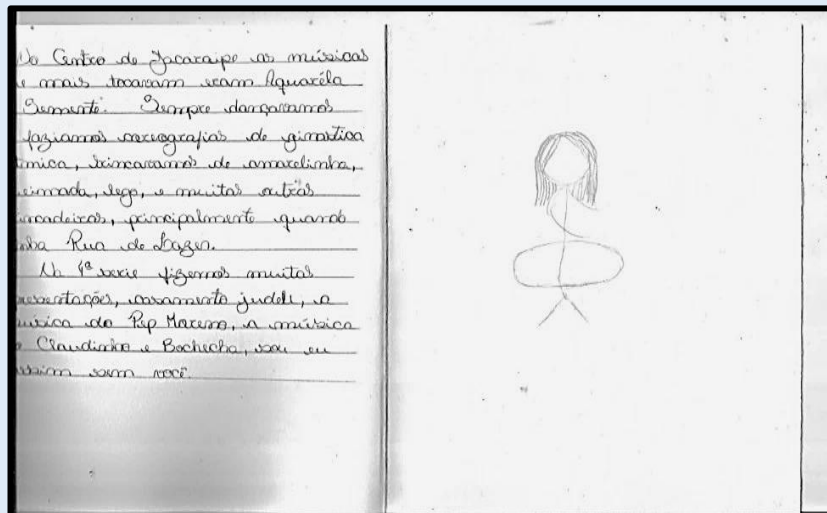 No Centro de Jacaraipe as músicas
e mais tocavam eram Aquaréla
Semente. Sempre dançavamos
faziamos coreografias de ginastica
tmica, brincavamos de amarelinha,
eimada, lego, e muitas outras
incadeiras, principalmente quando
nha Rua de Lazer.
Na 4ª serie fizemos muitas
presentações, casamento judeu, a
música do Rap Maneiro, a música
Claudinho e Bochecha, sou eu
assim sem você.